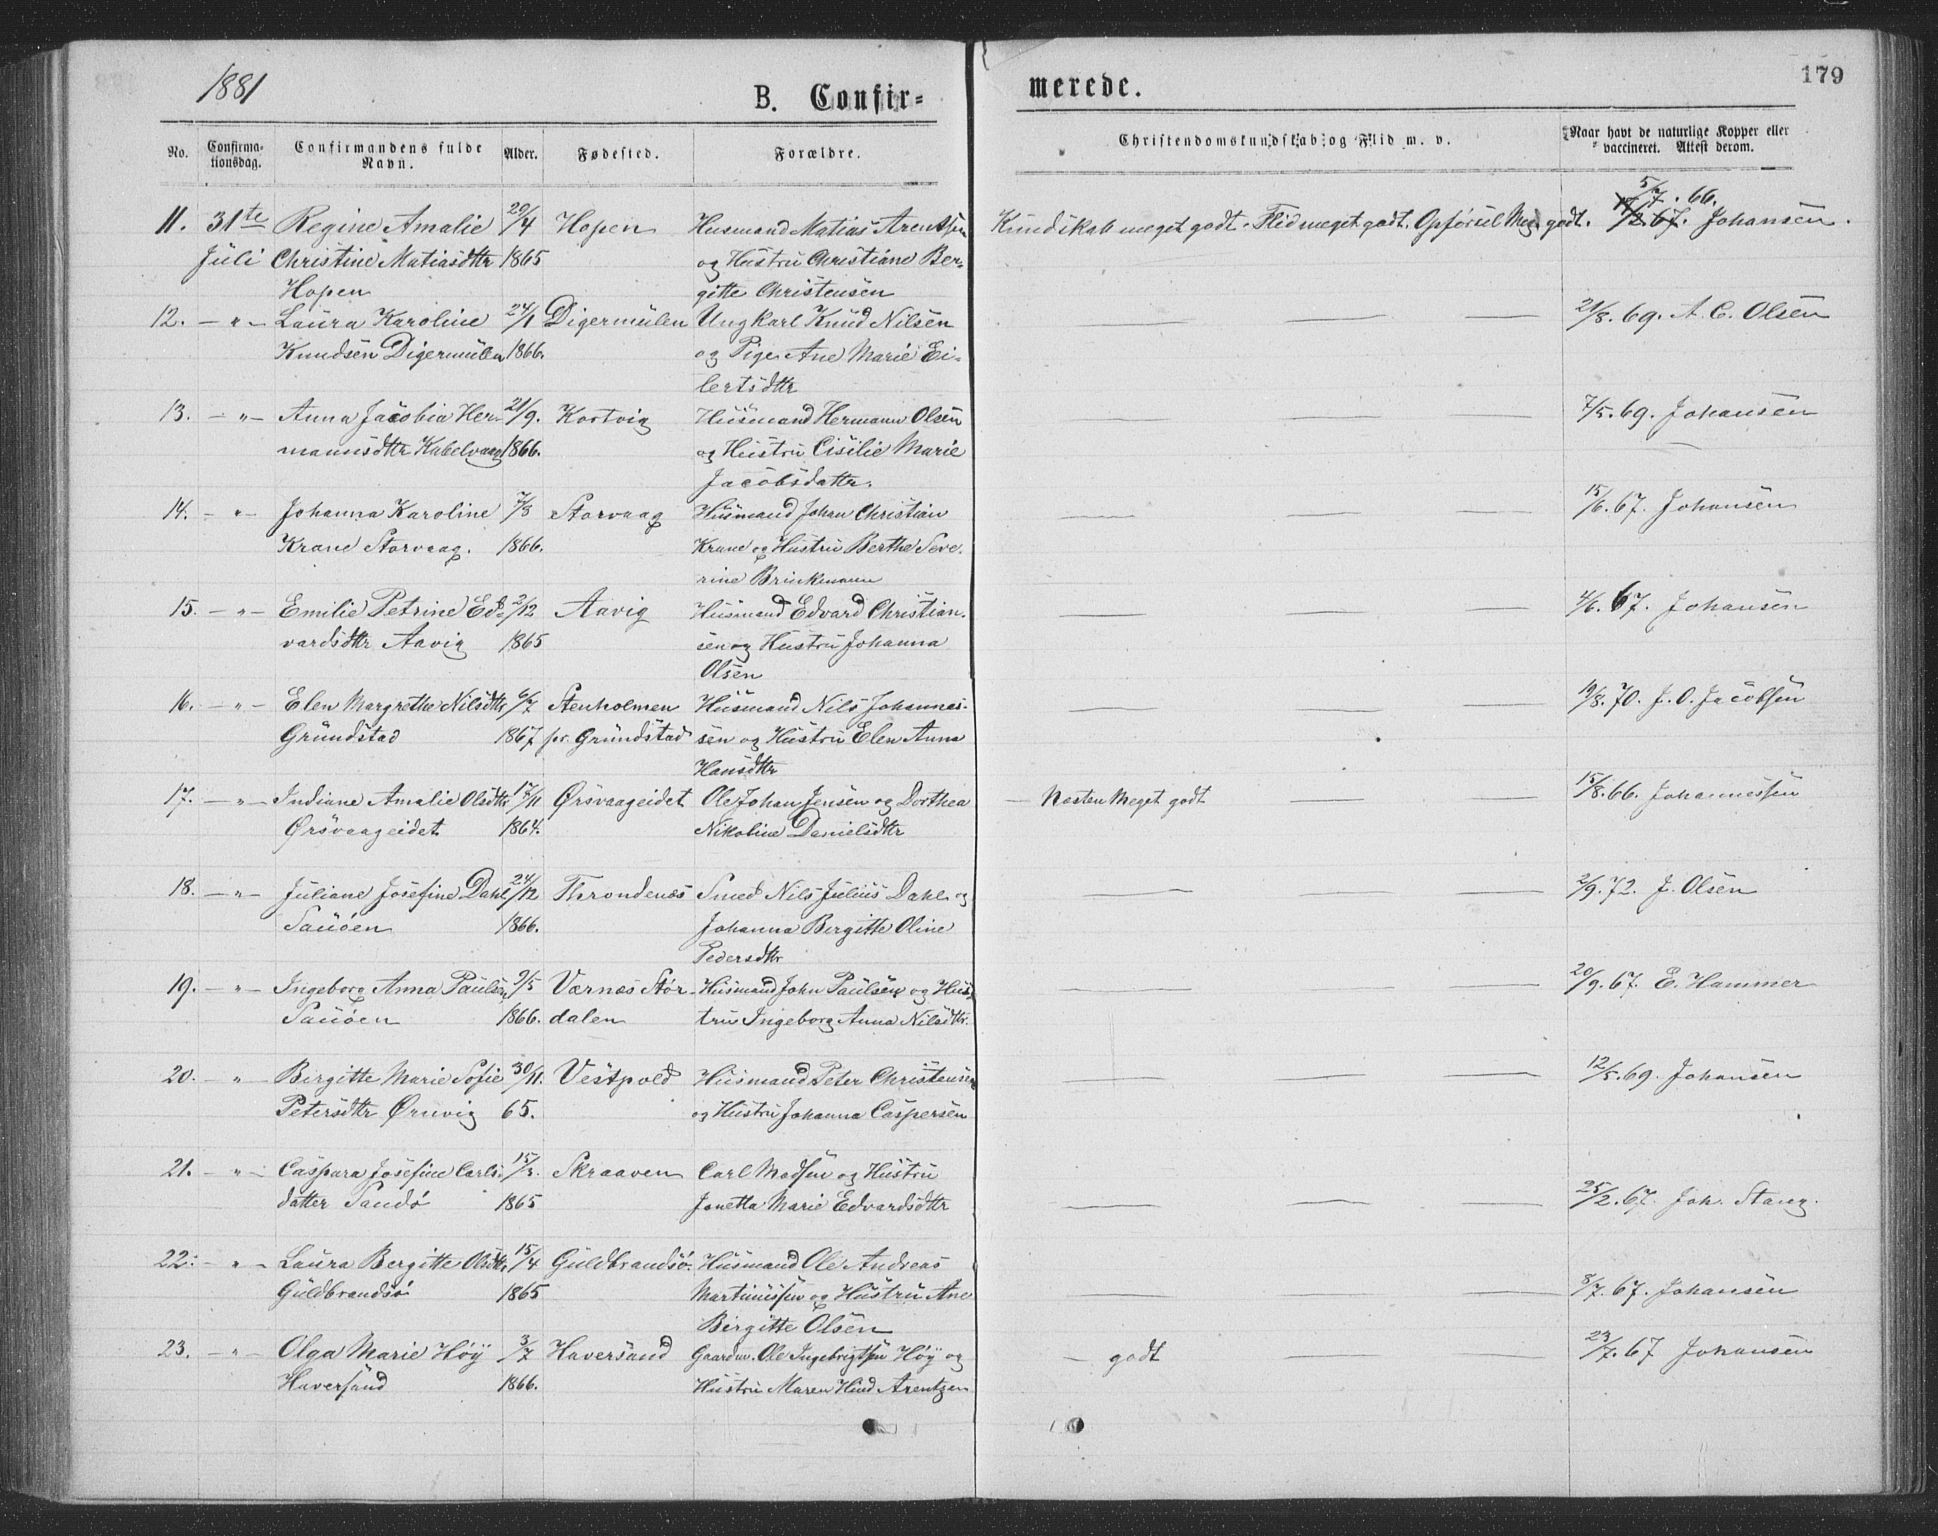 1881
B. Confir=
merede.
179
No.
Confirma-
tionsdag.
Confirmandens fulde
Navn.
Alder.
Fødested.
Forældre.
Christendomskundskab og Flid m. v.
Naar havt de naturlige Kopper eller
vaccineret. Attest derom.
11. 31te Regine Amalie 20/4 Hopen Husmand Matias Arentsen Kundskab meget godt. Flid meget godt. Opførsel Meg. godt. 5/7. 66. Johansen.
Juli Christine Matiasdttr 1865 og Hustru Christiane Ber-
Hopen gitte Christensen
12. — " — Laura Karoline 24/1 Digermulen Ungkarl Knud Nilsen — — — 21/8. 69. A. C. Olsen
Knudsen Digermulen 1866. og Pige Ane Marie Ei-
lertsdttr
13. — " — Anna Jacobia Her- 21/9. Kortvig Husmand Hermann Olsen — — — 7/5. 69. Johansen
mannsdttr Kabelvaag 1866. og Hustru Cisilie Marie
Jacobsdattr.
14. — " — Johanna Karoline 7/3 Storvaag Husmand Johan Christian — — — 15/6. 67. Johansen
Krane Storvaag. 1866. Krane og Hustru Berthe Seve-
rine Brinkmann
15. — " — Emilie Petrine Ed- 2/12 Aavig Husmand Edvard Christian- — — — 4/6. 67. Johansen
vardsdttr Aavig 1865 sen og Hustru Johanna
Olsen
16. — " — Elen Margrethe Nilsdttr 6/7 Stenholmen Husmand Nils Johannes- — — — 19/8. 70. J. O. Jacobsen
Grundstad 1867 pr. Grundstad sen og Hustru Elen Anna
Hansdttr
17. — " — Indiane Amalie Olsdttr 17/11 Ørsvaageidet Ole Johan Jensen og Dorthea — Næsten Meget godt — — 15/8. 66. Johannessen
Ørsvaageidet 1864. Nikoline Danielsdttr
18. — " — Juliane Josefine Dahl 24/12 Throndenæs Smed Nils Julius Dahl og — — — 2/9. 72. J. Olsen
Sauöen 1866. Johanna Birgitte Oline
Pedersdttr
19. — " — Ingeborg Anna Paulsen 9/5 Værnæs Stør- Husmand John Paulsen og Hus- — — — 20/9. 67. E. Hammer
Sauöen 1866. dalen tru Ingeborg Anna Nilsdttr.
20. — " — Birgitte Marie Sofie 30/11. Vestpold Husmand Peter Christensen — — — 12/5. 69. Johansen
Petersdttr Ørsvig 65. og Hustru Johanna Caspersen
21. — " — Caspara Josefine Carls- 15/3. Skraaven Carl Madsen og Hustru — — — 25/2. 67. Joh. Stang.
datter Sandö 1865 Jonetta Marie Edvardsdttr
22. — " — Laura Bergitte Olsdttr 15/4 Guldbrandsö. Husmand Ole Andreas — — — 8/7. 67. Johansen
Guldbrandsö 1865 Martinussen og Hustru Ane
Birgitte Olsen
23. — " — Olga Marie Höÿ 3/7 Haversand Gaardm. Ole Ingebrigtsen Höÿ og — godt — — 23/7. 67 Johansen
Haversand 1866. Hustru Maren Hind Arentzen